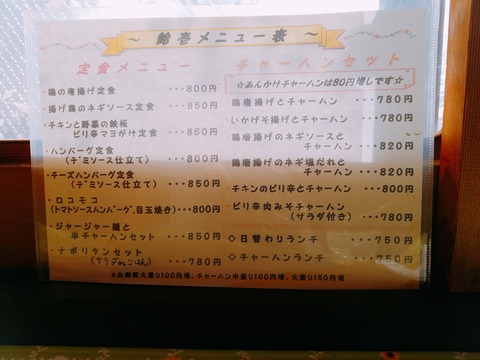 ～ 鈴壱メニュー表 ～
定食メニュー
・鶏の唐揚げ定食 ・・・800円
・揚げ鶏のネギソース定食 ・・・850円
・チキンと野菜の鉄板
ピリ辛マヨがけ定食 ・・・850円
・ハンバーグ定食
(デミソース仕立て) ・・・800円
・チーズハンバーグ定食
(デミソース仕立て) ・・・850円
・ロコモコ
(トマトソースハンバーグ、目玉焼き) ・・・800円
・ジャージャー麺と
半チャーハンセット ・・・850円
・ナポリタンセット
(サラダorごはん) ・・・780円
チャーハンセット
☆あんかけチャーハンは80円増しです☆
鶏唐揚げとチャーハン ・・・780円
いかげそ揚げとチャーハン ・・・780円
鶏唐揚げのネギソースと
チャーハン ・・・820円
鶏唐揚げのネギ塩だれと
チャーハン ・・・820円
チキンのピリ辛とチャーハン ・・・800円
ピリ辛肉みそチャーハン
(サラダ付き) ・・・780円
◇日替わりランチ ・・・750円
◇チャーハンランチ ・・・750円
＊白御飯大盛り100円増、チャーハン中盛り100円増、大盛り150円増